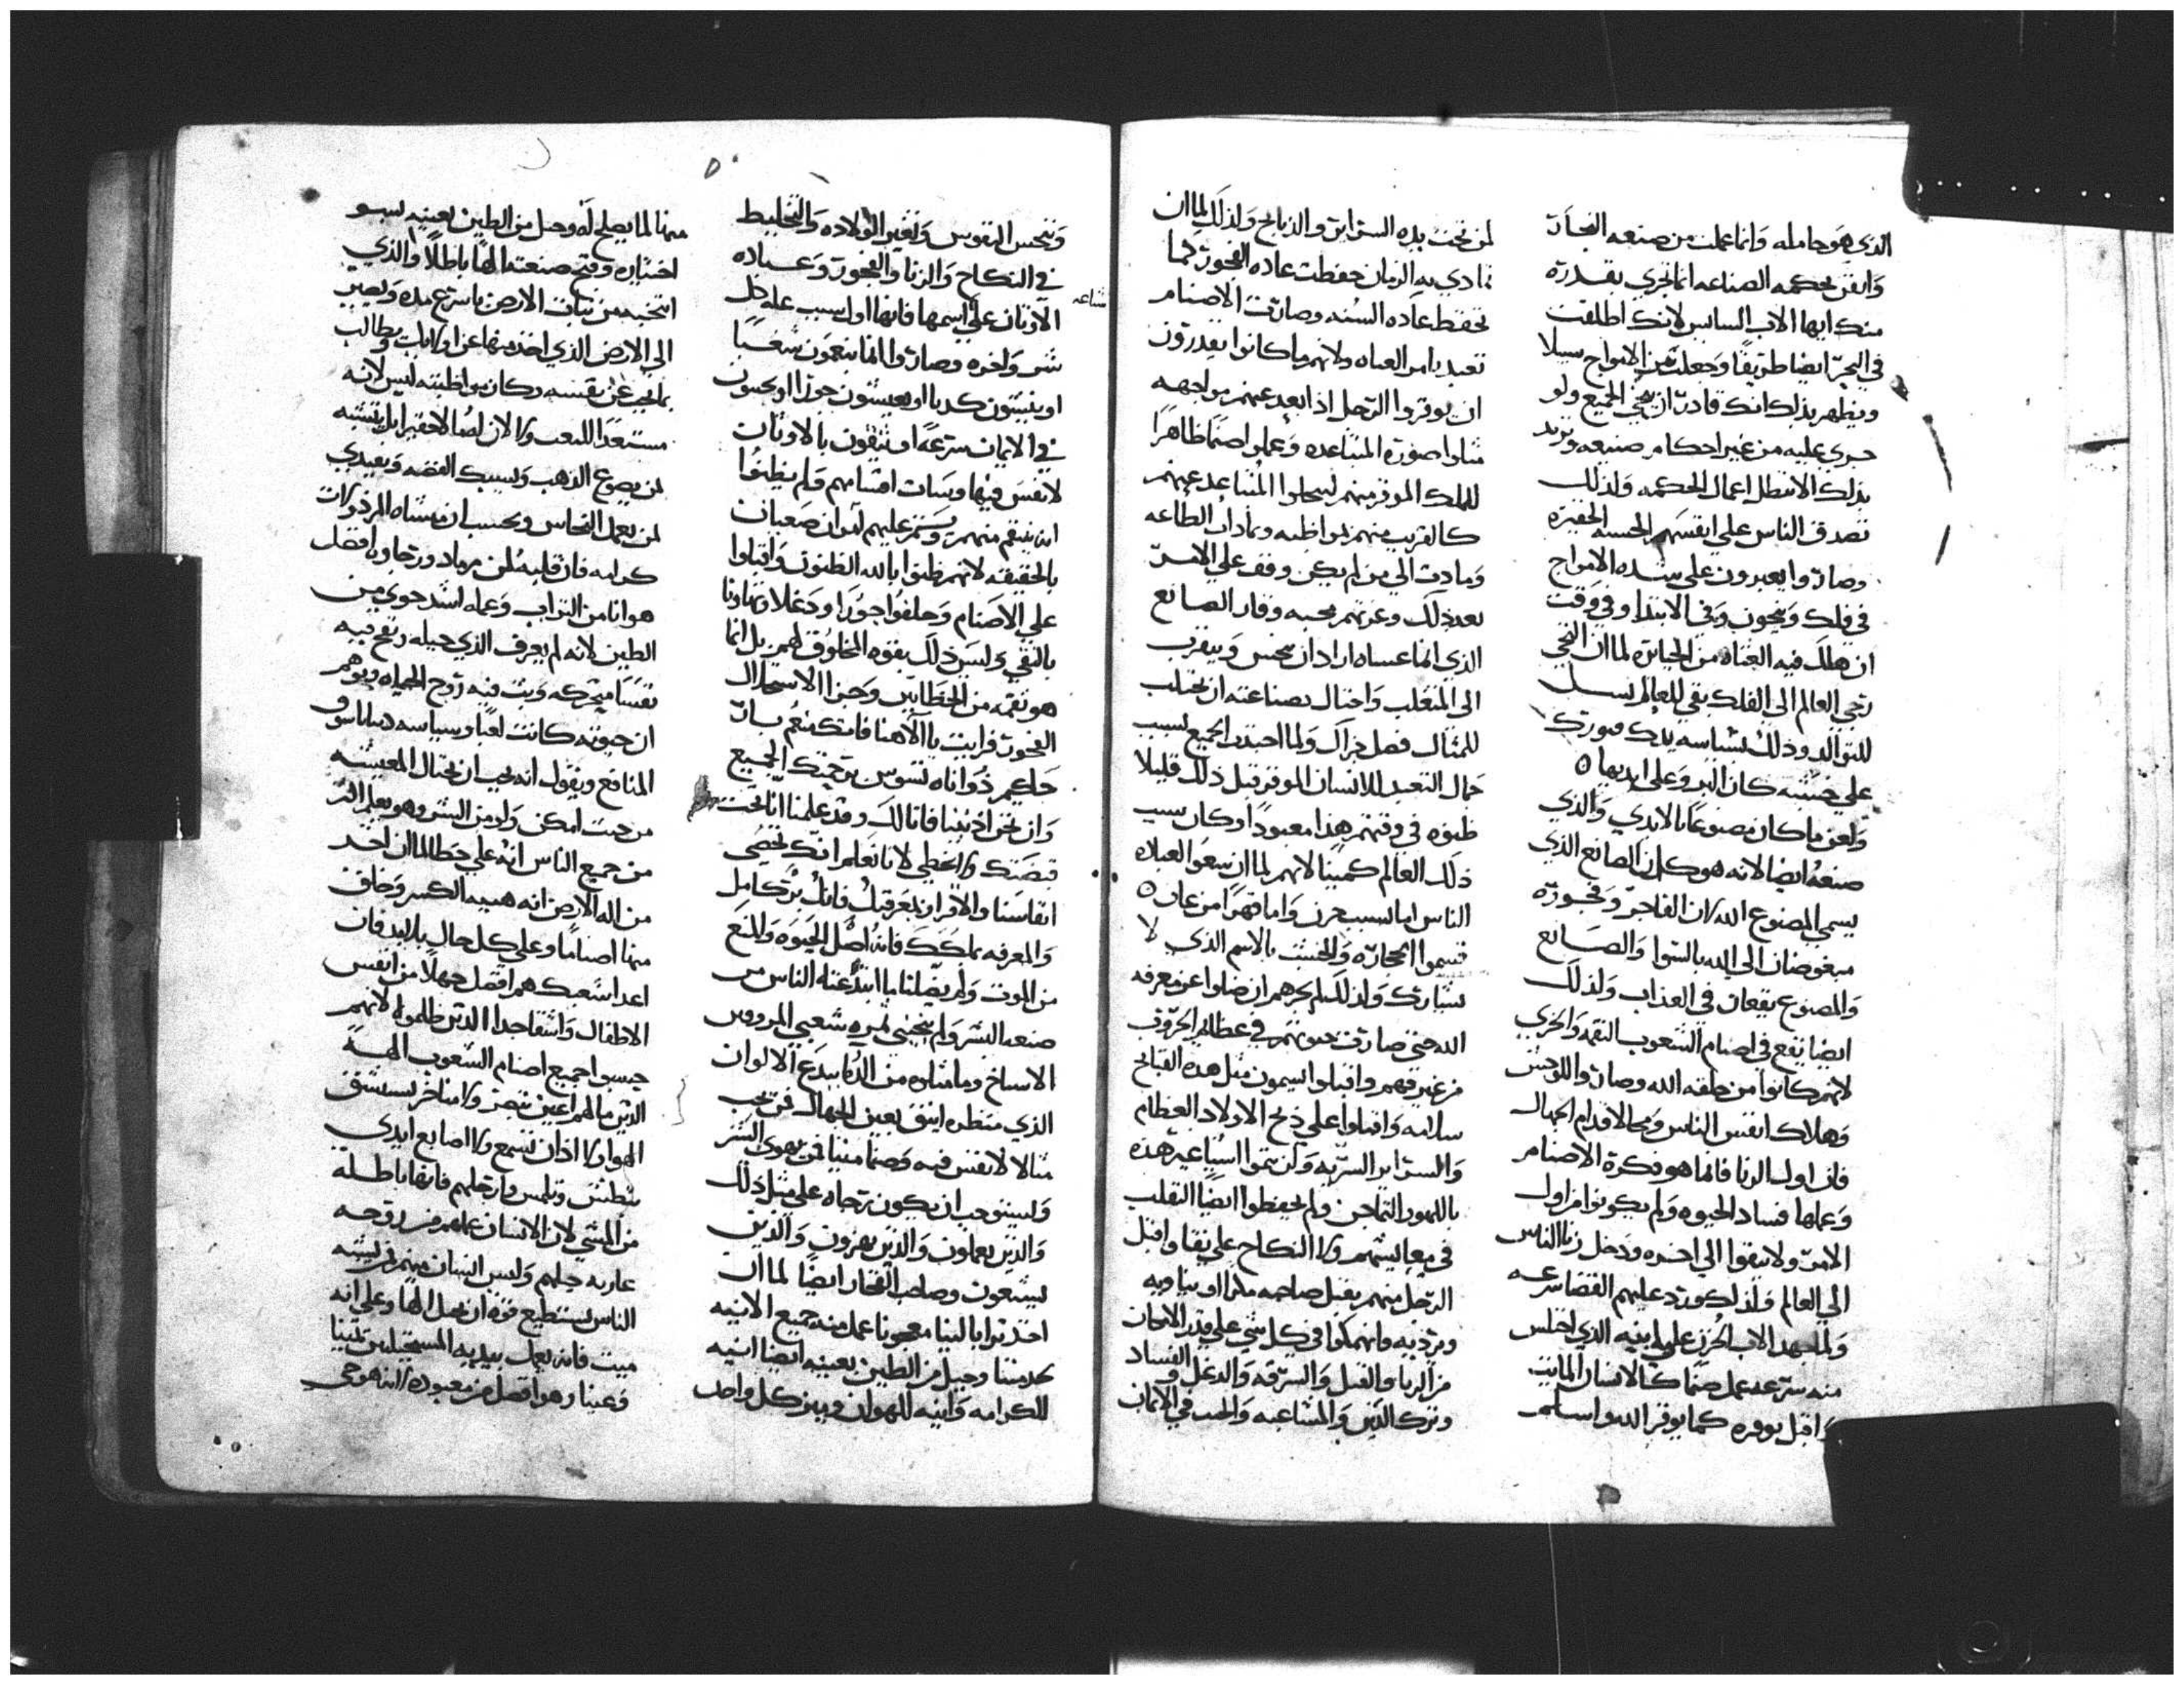 الذي هو حامله وانما عملت من صنعه النجار
واتقن بحكمه الصناعه انما تجري بقدرة
منك ايها الاب السايس لانك اطلقت
في البحر ايضا طريقا وجعلت بين الامواج سبيلا
ويظهر بذلك انك قادر ان تنجي الجميع ولو
جري عليه من غير احكام صنيعه وتريد
بذلك الا تبطل اعمال الحكمه ولذلك
تصدق الناس علي انفسهم الخشبه الحقيره
وصاروا يعبرون علي شده الامواج
في فلك وينجون وفي الابتدا وفي وقت
ان هلك فيه العتاه من الجبابره لما ان التجي
رجي العالم الي الفلك بقي للعالم نسل
للتوالد وذلك بسياسه يدك فبورك
علي خشبه كان البر وعلي ايديها
ولعن ما كان مصنوعا بالايدي والذي
صنعه ايضا لانه هو كان الصانع الذي
يسمي المصنوع الله لان الفاجر وفجوره
مبغوضان الي الله بالسوا والصانع
والمصنوع يقعان في العذاب ولذلك
ايضا تقع في اصنام الشعوب النقمه والخزي
لانهم كانوا من خلقه الله وصاروا للوحش
وهلاك انفس الناس وفخا لاقدام الجهال
فان اول الزنا فانما هو فكرة الاصنام
وعملها فساد الحيوه ولم يكونوا من اول
الامر ولا يبقوا الي اخره ودخل زنا الناس
الي العالم ولذلك ورد عليهم القضا سرعه
ولما جهد الاب الحزن علي ابنه الذي اختلس
منه سرعه عمل صنما كالانسان المايت
واقبل يوقره كما يوقر الله واسلم
لمن تحت يده السراير والذبايح ولذلك لما ان
تمادي به الزمان حفظت عاده الفجور كما
تحفظ عاده السنه وصارت الاصنام
تعبد بامر العتاه ولانهم ما كانوا يقدرون
ان يوقروا الرجل اذا بعد عنهم مواجهه
مثلوا صورة المتباعده وعملوا صنما ظاهرا
للملك الموقر منهم ليجلوا المتباعد عنهم
كالقريب منهم بمواظبه
ومادت الي من لم يكن وقف علي الامر
بعد ذلك وعزتهم محبه وقار الصانع
الذي انما عساه اراد ان يحسن ويتقرب
الي المتغلب واحتال بصناعته ان يجلب
للمثال فضل جزاك ولما اجتذب الجميع بسبب
جمال التعبد للانسان الموقر قبل ذلك قليلا
ظنوه في وقتهم هذا معبودا وكان سبب
ذلك العالم كمينا لانهم لما ان تبعوا العباده
الناس اما بسبب حزن واما قهرا من عات
قسموا الحجارة والخشب بالاسم الذي لا
يشارك ولذلك لم يجزهم ان ضلوا عن معرفه
الله حتي صارت حيوتهم في عظايم الحروب
من غير فهم واقبلوا يسمون مثل هذه القبايح
سلامه واقبلوا علي ذبح الاولاد العظام
والسراير السريه ولن يتموا اشيا غير هذه
باللهو والتماجن ولم يحفظوا ايضا التقلب
في معايشهم ولا النكاح علي نقا واقبل
الرجل منهم يقبل صاحبه
ويرديه وانهمكوا في كل شي علي قدر الامكان
من الزنا والقتل والسرقه والدغل والفساد
وترك الدين والمشاغبه والحنث في الايمان
شناعه
وتنجس النفوس وتغير الولاده والتخليط
في النكاح والزنا والفجور وعباده
الاوثان علي اسمها فانها اول سبب عله كل
شر واخره وصاروا انما ينعمون شغبا
او يتنبون كذبا او يعيشون جورا او يحنثون
في الايمان سرعه او يثقون بالاوثان
لانفس فيها وسات اقسامهم ولم يظنوا
انه ينتقم منهم ويستمر عليهم امران صعبان
بالحقيقه لانهم ظنوا بالله الظنون واقبلوا
علي الاصنام وحلفوا جورا ودغلا وتهاونا
بالنقي وليس ذلك بقوه المخلوق لهم بل انما
هو نقمه من الخطايين وجزا الاستحلال
الفجور فرايت يا الاهنا فانك منعم بار
حليم ذو اناه تسوس برحمتك الجميع
وان نحن اذنبنا فانا لك وقد علمنا انا تحت
قبضتك ولا نخطي لانا نعلم انك تحصي
انفاسنا والاقرار بمعرفتك فانك بر كامل
والمعرفه بملكك فانه اصل الحيوه والمنع
من الموت ولم يضلنا ما ابتدعته الناس من
صنعه الشر ولم
الاساخ وما مثلوه من الدمي ببدع الالوان
الذي منظره انيق بعين الجهال فمن يحب
مثالا لانفس فيه وصنما ميتا فمن يهوي الشر
وليستوجب ان يكون رجاه علي مثل ذلك
والذين يعملون والذين يهزون والذين
يستبعون وصاحب الفخار ايضا لما ان
اخذ ترابا لينا معجونا عمل منه جميع الانيه
لخدمتنا وجبل من الطين بعينه ايضا انيه
للكرامه وانيه للهوان وميز كل واحد
منها لما يصلح له وجبل من الطين بعينه بسو
اختياره وقبح صنعته الها باطلا والذي
انتحبه من نبات الارض باسرع مده ويصير
الي الارض الذي اخذ منها عن اوليات وطالب
بما يجب عن نفسه وكان مواظبته ليس لانه
مستعدا للتعب ولا لان لصا لا حقير بل يتشبه
لمن يصوغ الذهب ويسبك الفضه ويقتدي
لمن يعمل النحاس ويحسب ان منشاه المرذولات
كرامه فان قلبه لمن رماد ورجاوه افضل
هوانا من التراب وعمله اشد حوي من
الطين لانه لم يعرف الذي جبله ونفخ فيه
نفسا متحركه وبث فيه روح الحياه وتوهم
ان حيوته كانت لعبا وسياسه
المنافع ويقول انه يجب ان يحتال المعيشه
من حيث امكن ولو من الشر وهو يعلم اكثر
من جميع الناس انه علي خطا لما ان اخذ
من اله الارض انيه هينه الكسر وخلق
منها اصناما وعلي كل حال بلا بد فان
اعدا شعبك هم افضل جهلا من انفس
الاطفال واشقا جدا الذين ظلموه لانهم
حبسوا جميع اصنام الشعوب الهه
الذين ما لهم اعين تبصر ولا مناخر يستنشق
الهوا ولا اذان تسمع ولا اصابع ايدي
تبطش وتلمس وارجلهم فانها باطله
من المشي لان الانسان عملهم ومن روحه
عاريه جبلهم وليس انسان منهم يشبه
الناس يستطيع قوه ان يجبل الها وعلي انه
ميت فانه يعمل بيديه المستحيلين
وعبثا وهو افضل من معبوده لانه هو حي